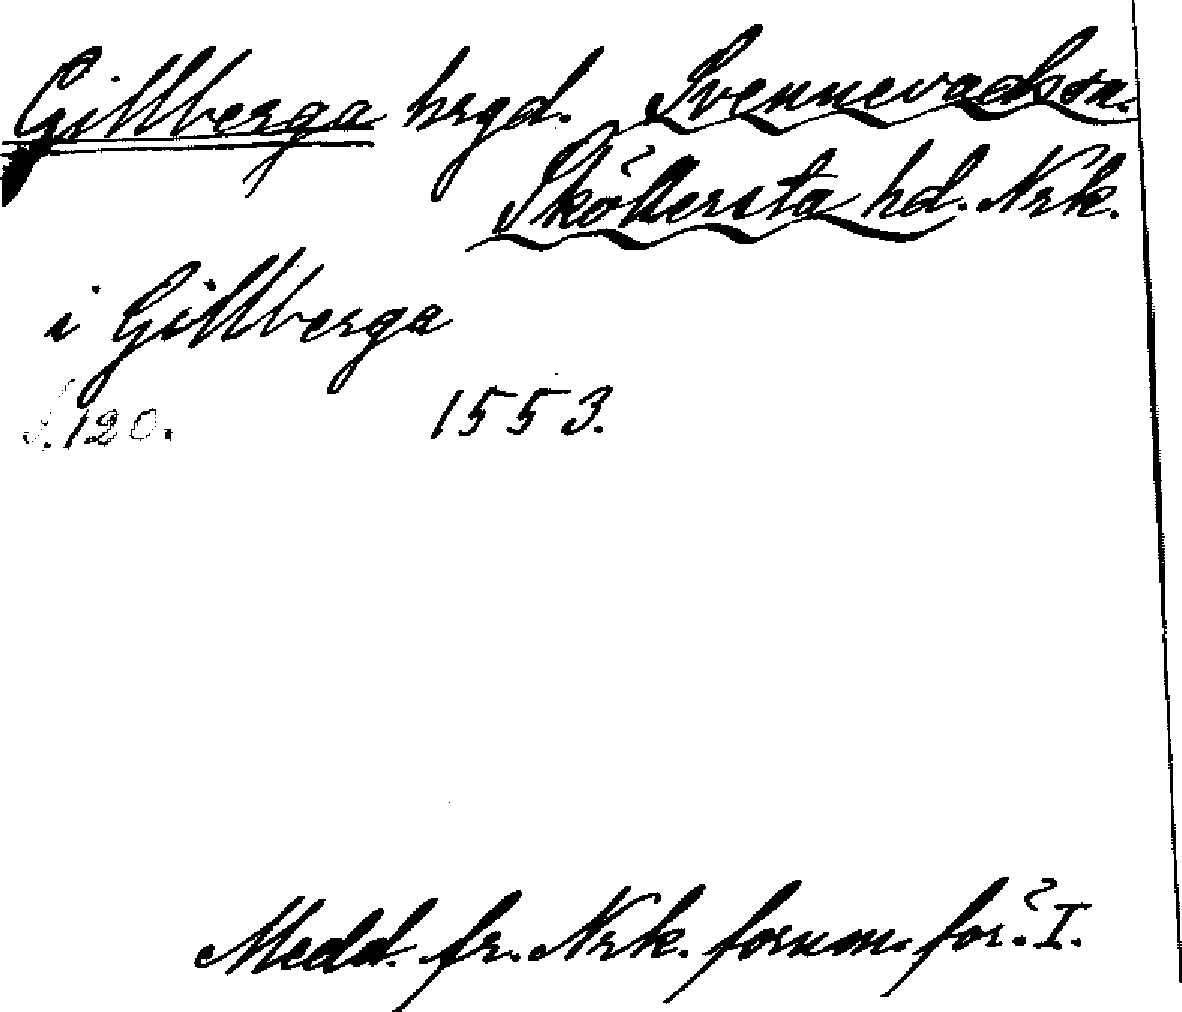 Gillberga hrgd. Svennevads sn.
Sköllersta hd. Nrk.
i Gillberga
S. 120. 1553.
Medd. fr. Nrk. fornm. för. I.